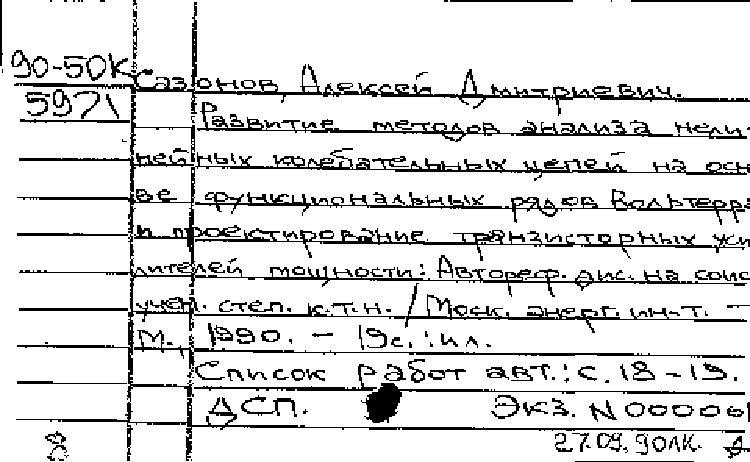 90-50К
5971
Сазонов, Алексей Дмитриевич.
Развитие методов анализа нели-
нейных колебательных цепей на осно
ве функциональных рядов Вольтерра
и проектирование транзисторных уси
лителей мощности: Автореф. дис. на соис
учен. степ. к.т.н. / Моск. энерг. ин-т. -
М., 1990. - 19с.: ил.
Список работ авт.: с. 18-19.
ДСП. Экз. N 000061
27.09.90ЛК.